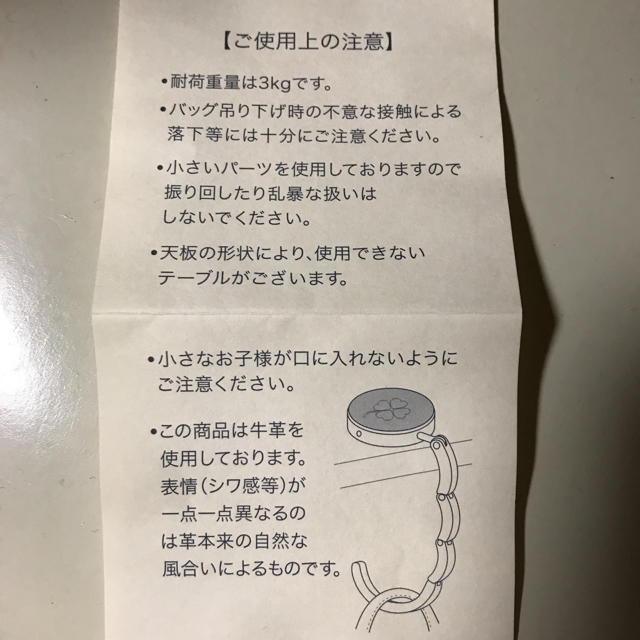 【ご使用上の注意】
•耐荷重量は3kgです。
•バッグ吊り下げ時の不意な接触による
落下等には十分にご注意ください。
•小さいパーツを使用しておりますので
振り回したり乱暴な扱いは
しないでください。
•天板の形状により、使用できない
テーブルがございます。
•小さなお子様が口に入れないように
ご注意ください。
•この商品は牛革を
使用しております。
表情（シワ感等）が
一点一点異なるの
は革本来の自然な
風合いによるものです。